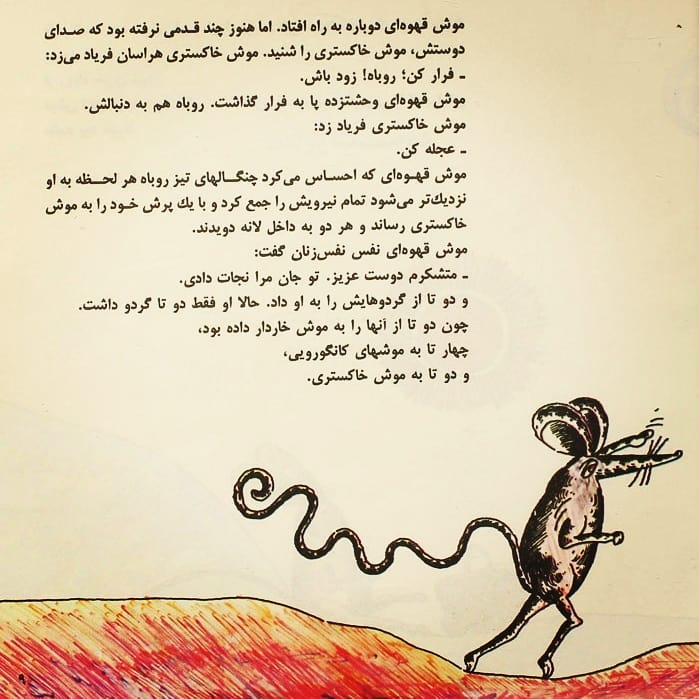 موش قهوه‌ای دوباره به راه افتاد. اما هنوز چند قدمی نرفته بود که صدای
دوستش، موش خاکستری را شنید. موش خاکستری هراسان فریاد می‌زد:
ـ فرار کن؛ روباه! زود باش.
موش قهوه‌ای وحشتزده پا به فرار گذاشت. روباه هم به دنبالش.
موش خاکستری فریاد زد:
ـ عجله کن.
موش قهوه‌ای که احساس می‌کرد چنگالهای تیز روباه هر لحظه به او
نزدیك‌تر می‌شود تمام نیرویش را جمع کرد و با یك پرش خود را به موش
خاکستری رساند و هر دو به داخل لانه دویدند.
موش قهوه‌ای نفس نفس‌زنان گفت:
ـ متشکرم دوست عزیز. تو جان مرا نجات دادی.
و دو تا از گردوهایش را به او داد. حالا او فقط دو تا گردو داشت.
چون دو تا از آنها را به موش خاردار داده بود،
چهار تا به موشهای کانگورویی،
و دو تا به موش خاکستری.